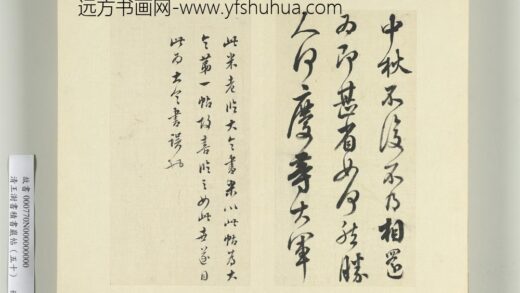 远方书画网- www.yfshuhua.com
中秋不復不得相還
為即甚省如何然勝
人何慶等大軍
此米老臨大令書米以此帖為大
令第一帖故喜臨之如此世遂目
此為大令書誤
故書000770N000000000
清王澍書積書巖帖（五十）